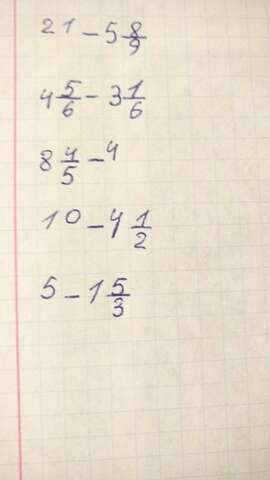 21 - 5 8/9
4 5/6 - 3 1/6
8 4/5 - 4
10 - 4 1/2
5 - 1 5/3